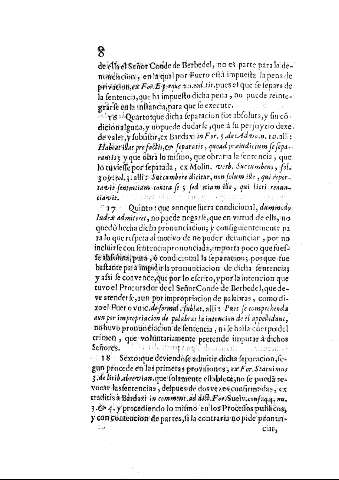 8
de ella el Señor Conde de Berbedel, no es parte para la de-
nunciacion, en la qual por Fuero està impuesta la pena de
privacion, ex For. E porque 22. eod. tit. pues el que se separa de
la sentencia, que ha impuesto dicha pena, no puede reinte-
grarse en la instancia, para que se execute.
16 Quarto: que dicha separacion fue absoluta, y sin cõ-
dicion alguna, y no puede dudarse, que à su perjuyzio deve
de valer, y subsistir, ex Bardaxi in For. 5. de Advoc. n. 10. alli:
Habiat illas pro factis, & separatis, quoad præiudicium se sepa-
rantis; y que obra lo mismo, que obraria la sentencia, que
lo tuviesse por separado, ex Molin. verb. Sucumbens, fol.
307. col. 3. alli: Sucumbere dicitur, non solum ille, qui repor-
tavit sententiam contra se; sed etiam ille, qui liti renun-
tiavit.
17 Quinto: que aunque fuera condicional, dummodo
Index admiteret, no puede negarse, que en virtud de ella, no
quedò hecha dicha pronunciacion; y consiguientemente pa
ra lo que respeta al motivo de no poder denunciar, por no
incluirse con sentencia pronunciada, importa poco que fues-
se absoluta, pura, ò condicional la separacion; porque fue
bastante para impedir la pronunciacion de dicha sentencia;
y assi se convence, que por lo escrito, y por la intencion que
tuvo el Procurador de el Señor Conde de Berbedel, que de-
ve atenderse, aun por impropriacion de palabras, como di-
xo el Fuero unic. de formul. sublat. alli: Pues se comprehenda
aun por impropriacion de palabras la intencion de el apposidante,
no huvo pronunciacion de sentencia, ni se halla cuerpo del
crimen, que voluntariamente pretende imputar à dichos
Señores.
18 Sexto: que deviendose admitir dicha separacion, se-
gun procede en las primeras provisiones, ex For. Statuimos
3. de litib. abreviam. que solamente ella obste, no se puede re-
vocar las sentencias, despues de dos vezes confirmadas, ex
traditis à Bardaxi in comment. ad dict. For. Suelv. conseqq. nu.
3. & 4. y procediendo lo mismo en los Processos publicos,
y con contencion de partes, si la contraria no pide pronun-
ciar,